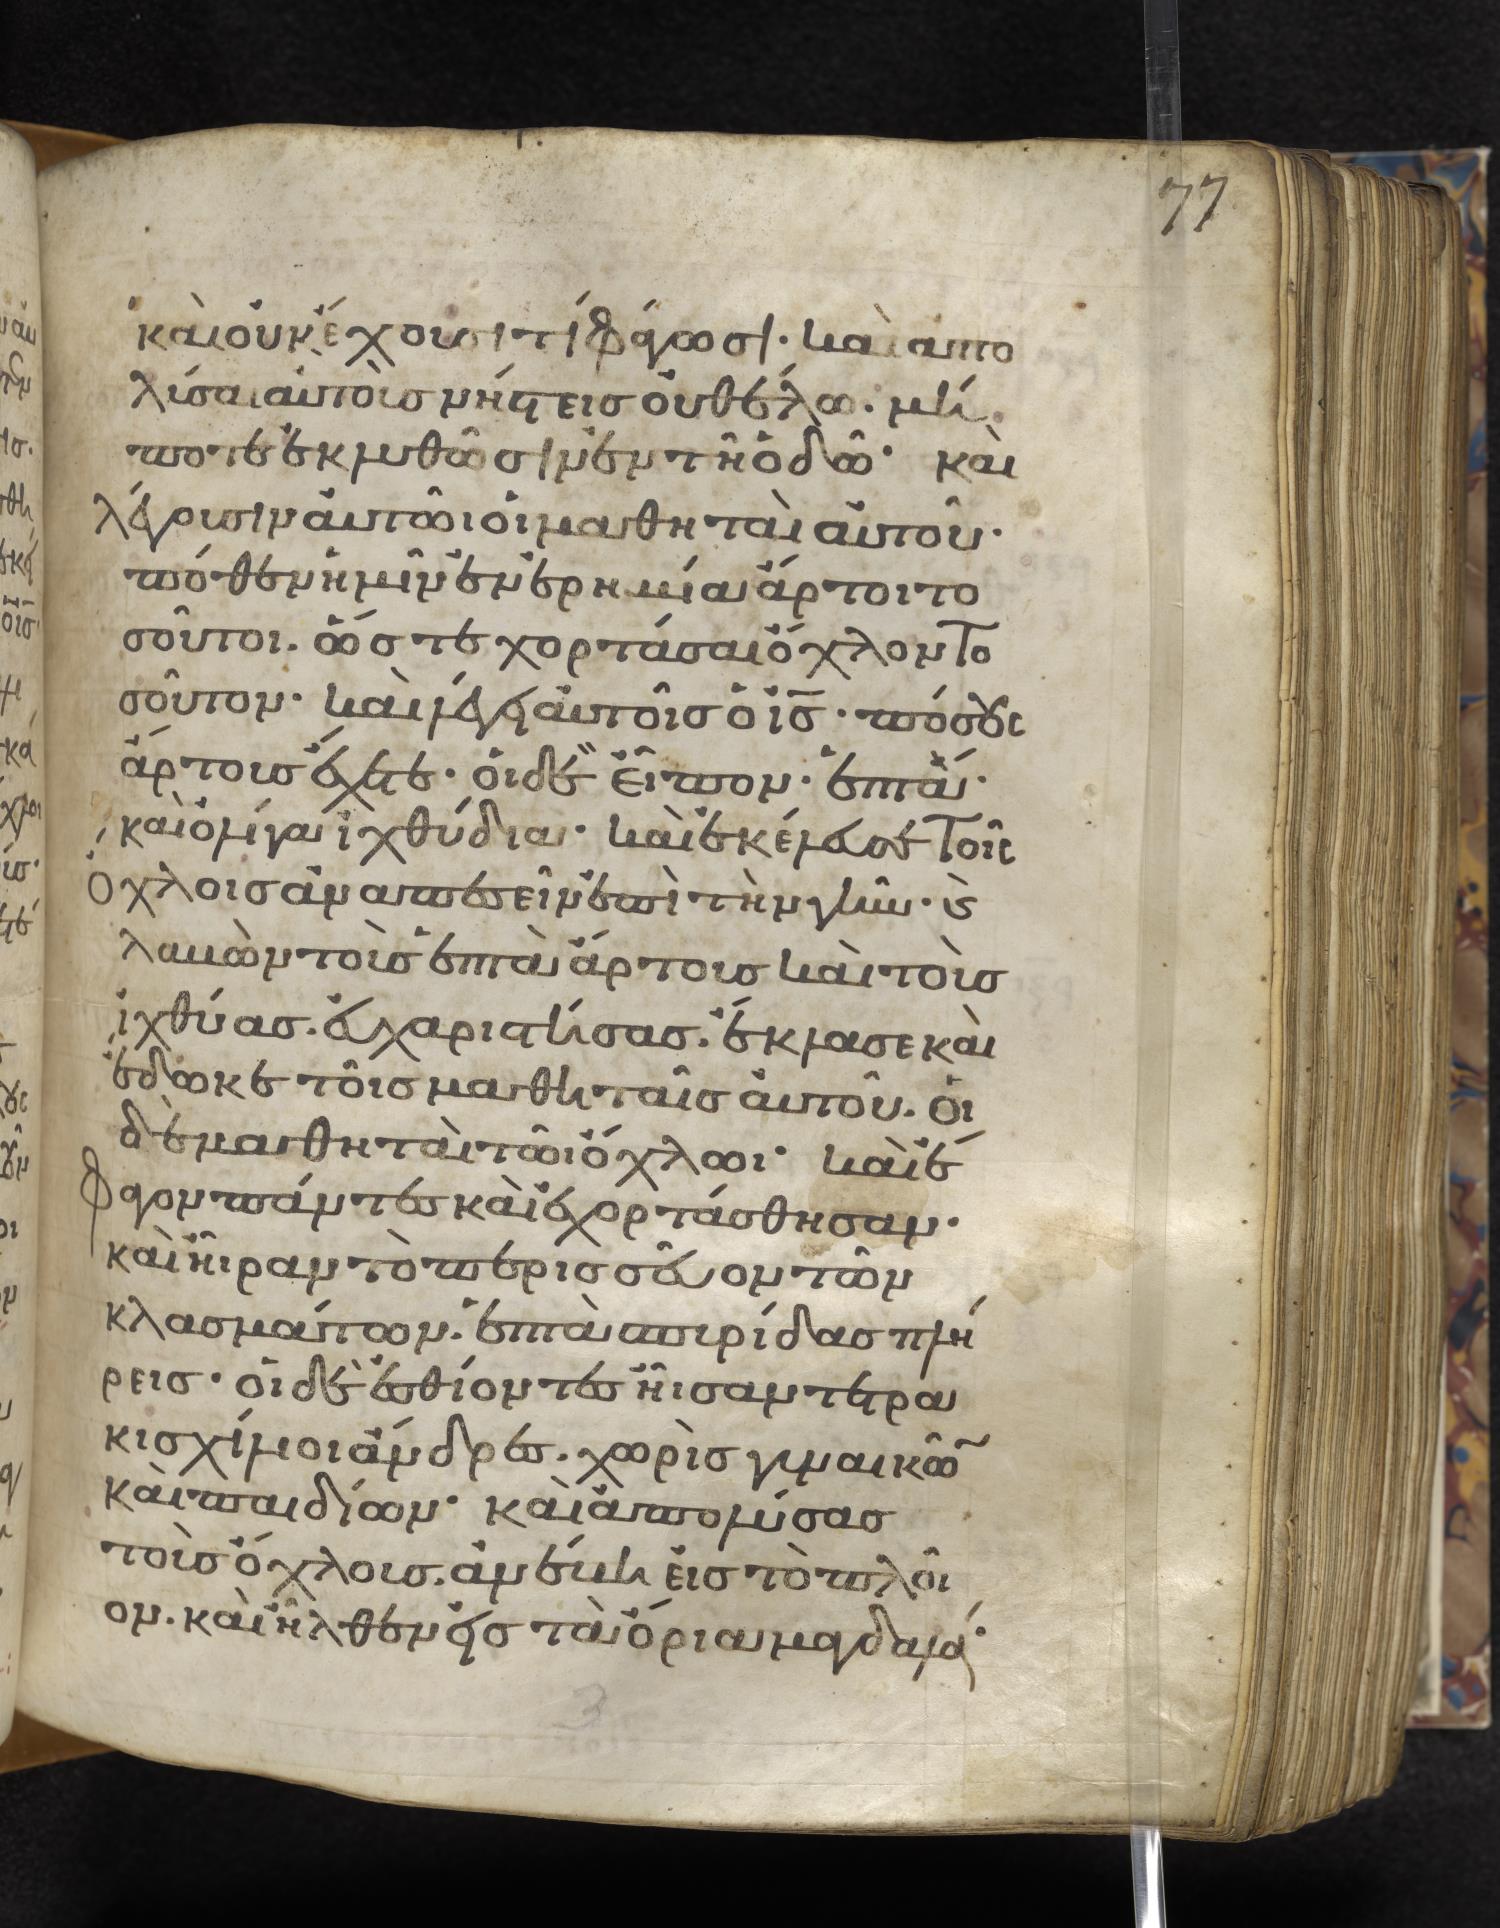 77
καὶ οὐκ ἔχουσι τί φάγωσι· καὶ ἀπο
λῦσαι αὐτοὺς νήστεις οὐ θέλω. μή
ποτε ἐκλυθῶσιν ἐν τῇ ὁδῶ· καὶ
λέγουσιν αὐτῶι οἱ μαθηταὶ αὐτοῦ·
πόθεν ἡμῖν ἐν ἐρημία ἄρτοι το
σοῦτοι. ὥστε χορτάσαι ὄχλον το
σοῦτον· καὶ λέγει αὐτοῖς ὁ ἰς̄· πόσους
ἄρτους ἔχετε· οἱ δὲ εἶπον· ἑπτά·
καὶ ὀλίγα ἰχθύδια· καὶ ἐκέλευσε τοῖς
ὄχλοις ἀναπεσεῖν ἐπὶ τὴν γῆν· καὶ
λαβὼν τοὺς ἑπτὰ ἄρτους καὶ τοὺς
ἰχθύας. εὐχαριστήσας. ἔκλασε καὶ
ἔδωκε τοῖς μαθηταῖς αὐτοῦ. οἱ
δὲ μαθηταὶ τῶι ὄχλωι· καὶ ἔ
φαγον πάντες καὶ ἐχορτάσθησαν·
καὶ ἦραν τὸ περισσεῦον τῶν
κλασμάτων. ἑπτὰ σπυρίδας πλή
ρεις· οἱ δὲ ἐσθίοντες ἦσαν τετρα
κισχίλιοι ἄνδρες. χωρὶς γυναικῶ̄
καὶ παιδίων· καὶ ἀπολύσας
τοὺς ὄχλους. ἀνέβη εἰς τὸ πλοῖ
ον. καὶ ἦλθεν εἰς τὰ ὅρια μαγδαλά·
3